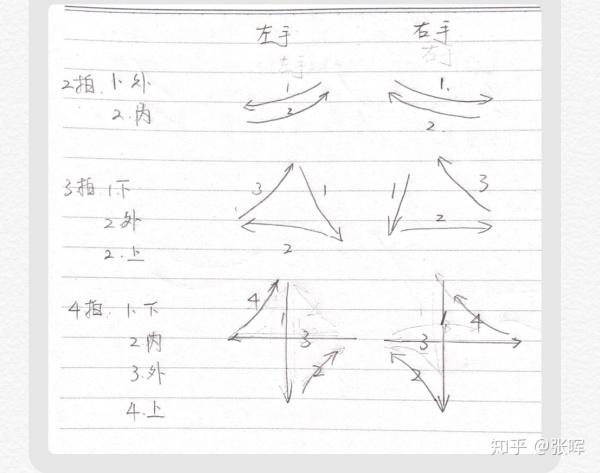 左手 右手
左手 右手
2拍. 1.外 1 1.
2.内 2 2.
3拍 1.下 3 1 1 3
2外 2 2
2.上
4拍. 1.下 4 1 1 4
2.内 3 3
3.外 2 2
4.上
知乎 @张晖